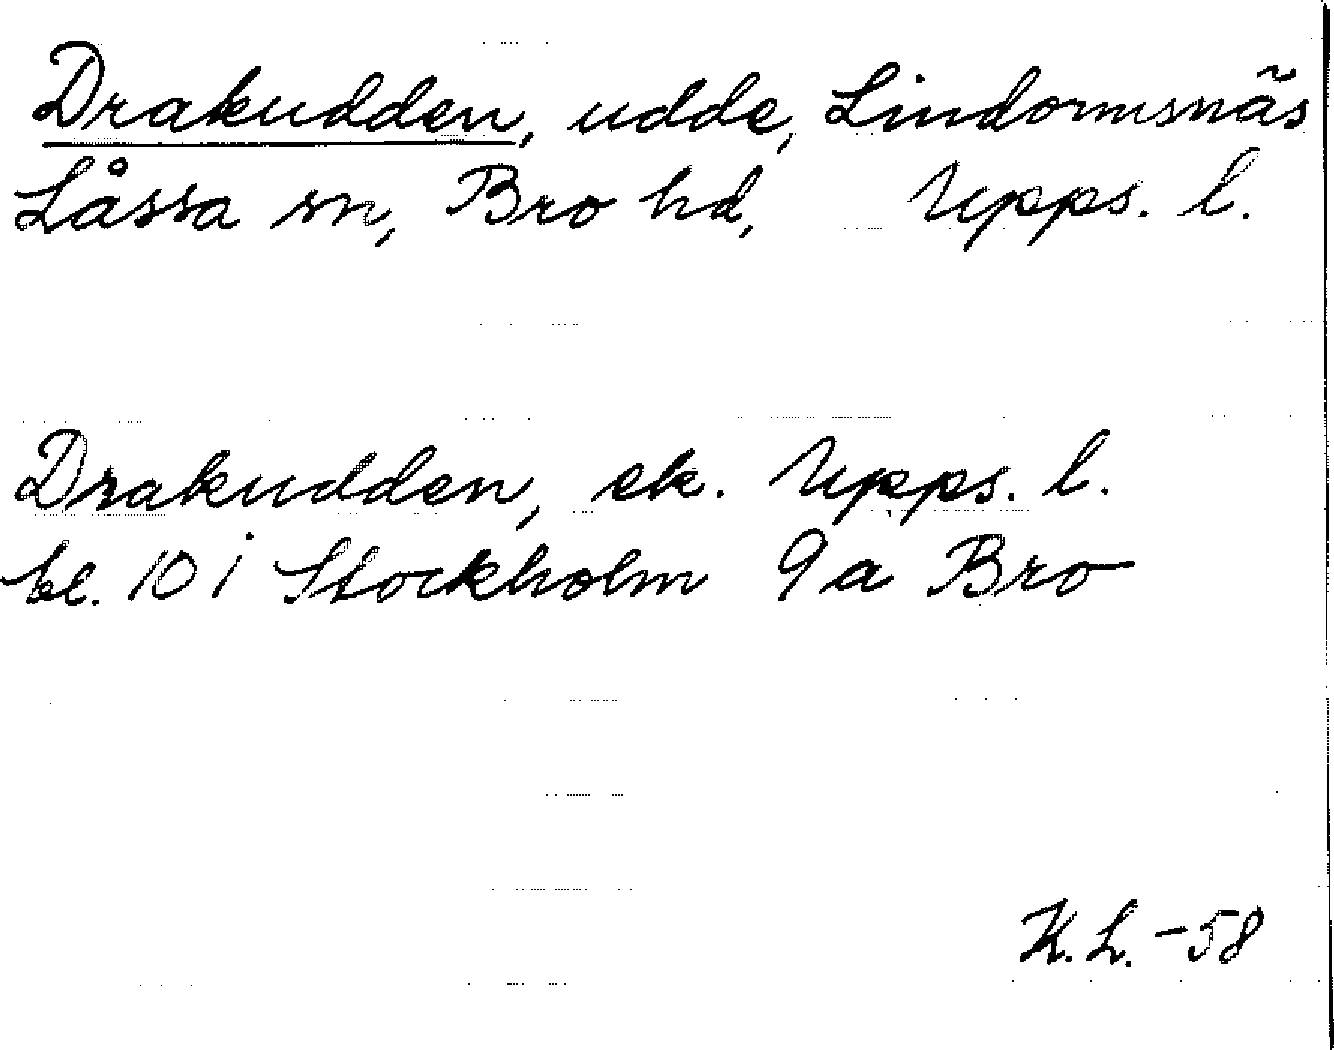 Drakudden, udde, Lindormsnäs
Låssa sn, Bro hd, Upps. l.
Drakudden, ek. Upps. l.
bl. 10 i Stockholm 9a Bro
K.L. -58